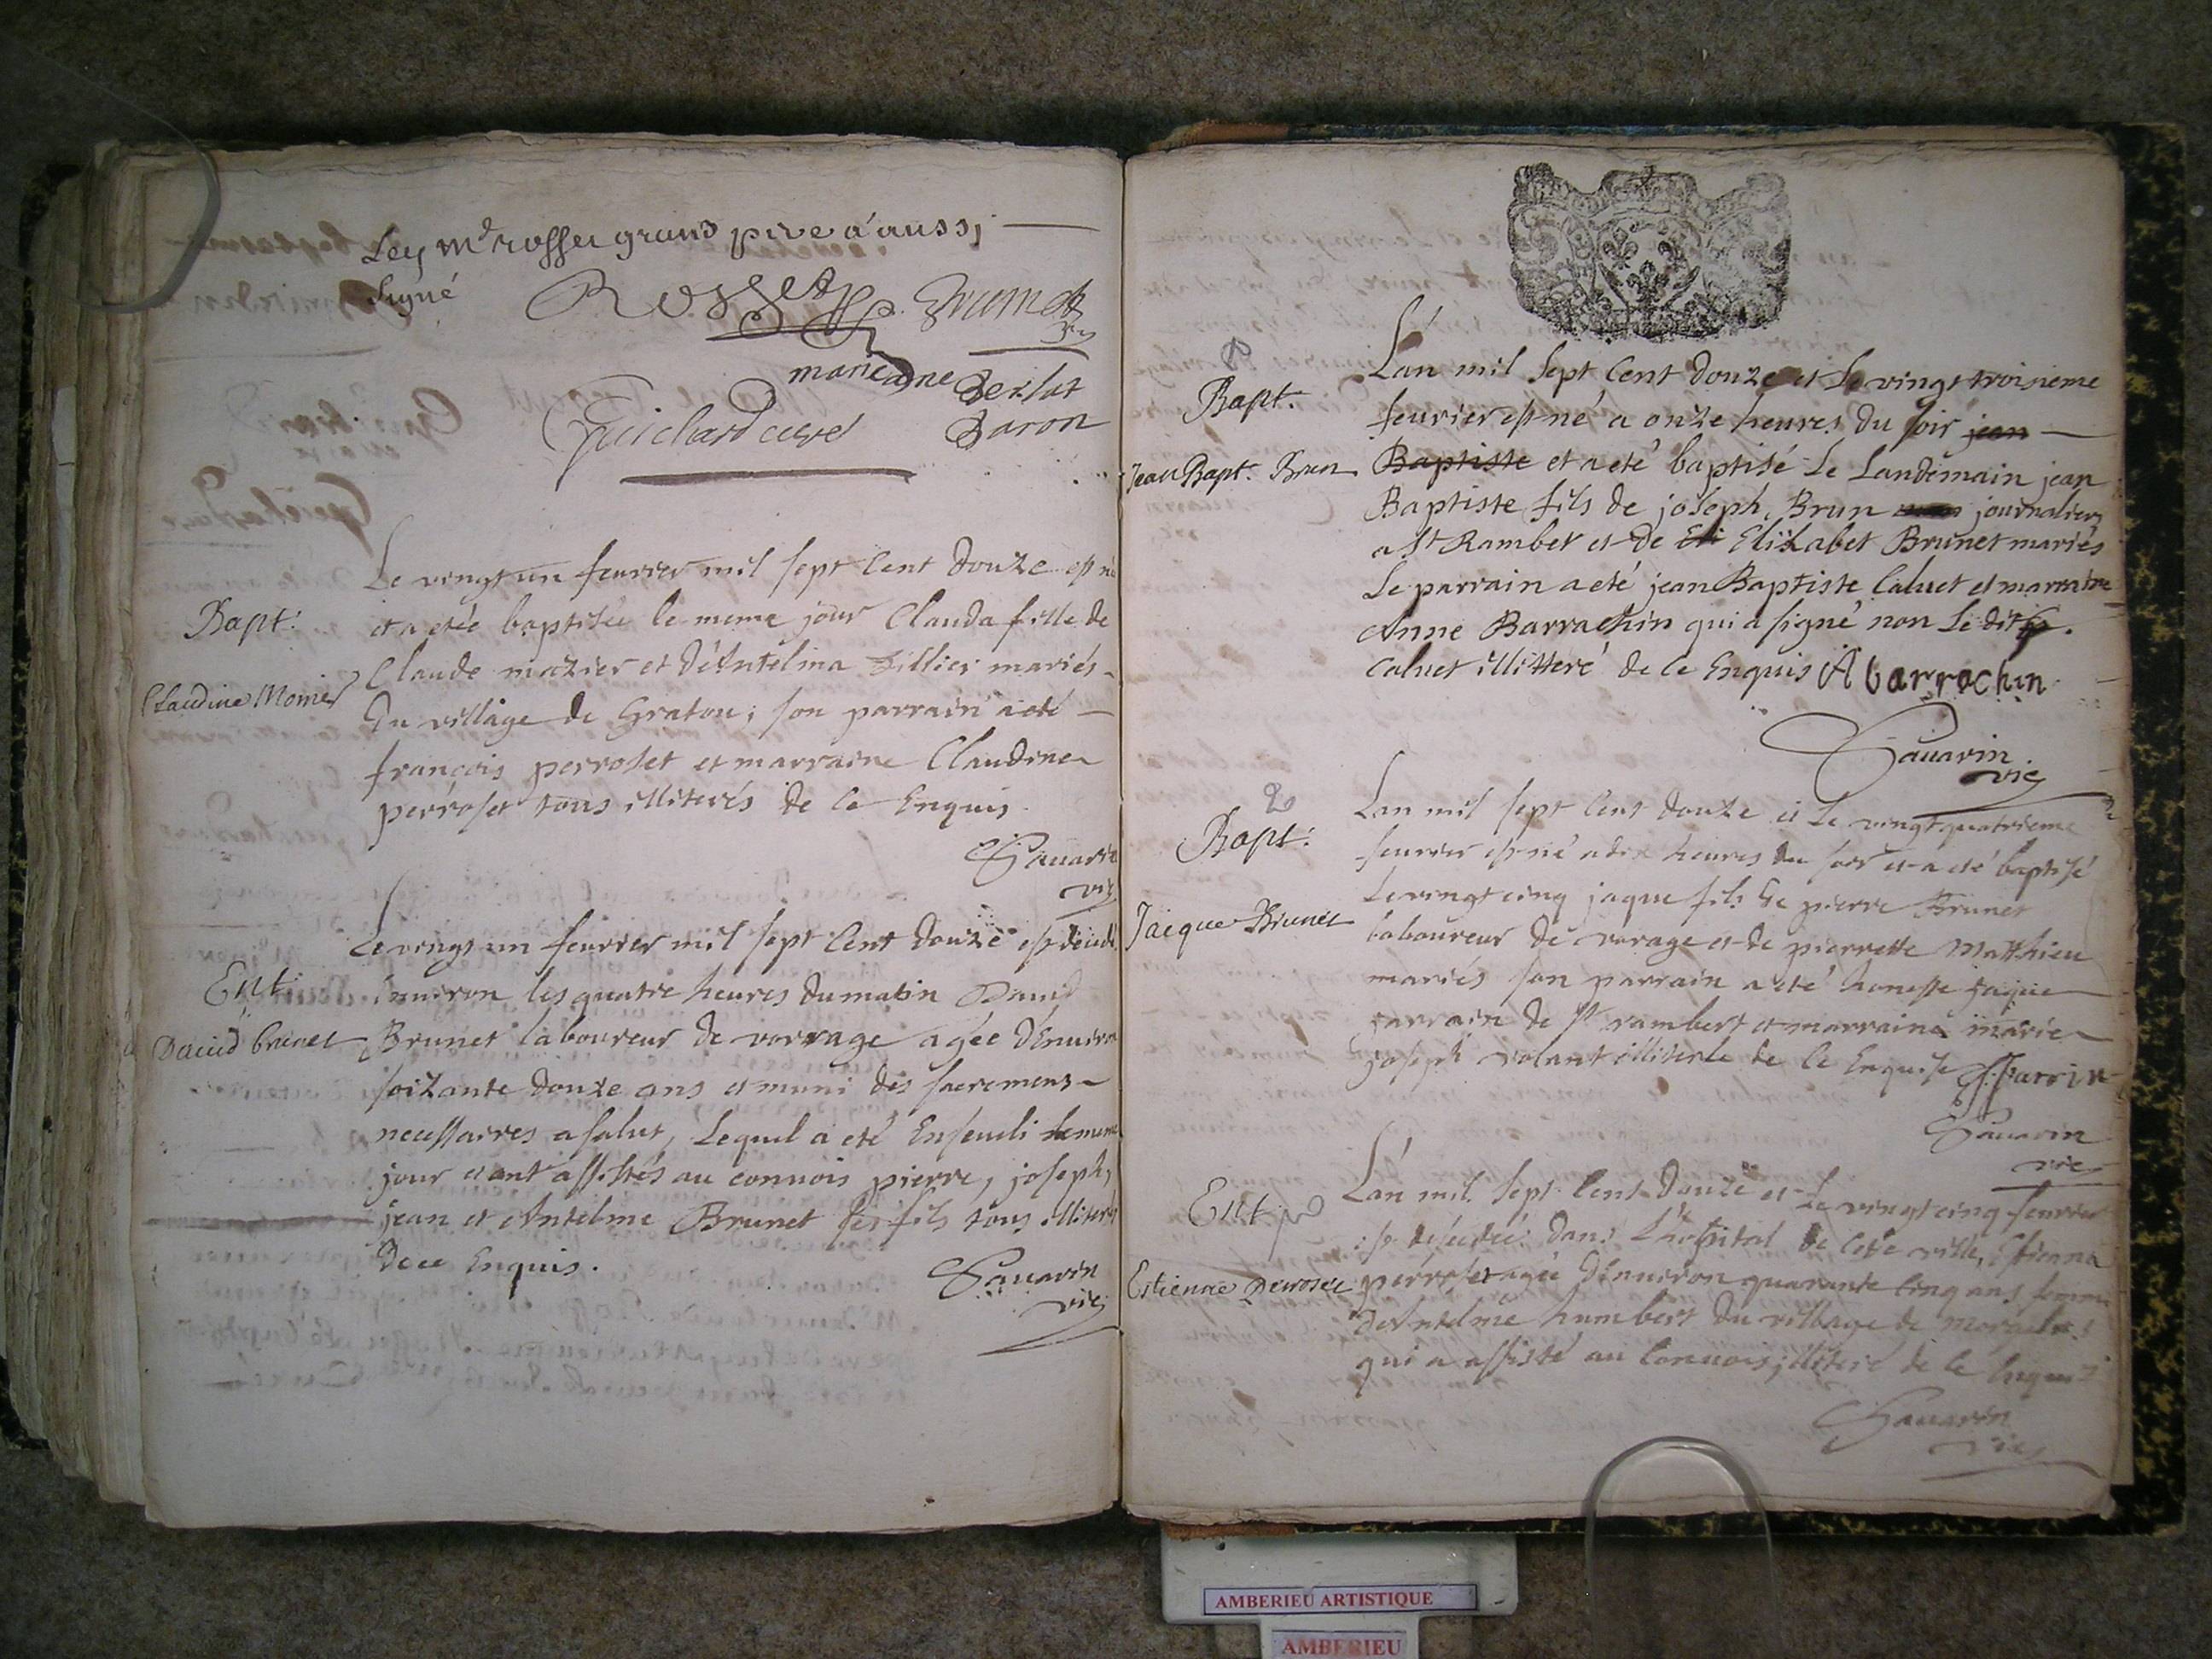 Rosset
Brumet
marieane Berlat
Guichard curé
Baron
Bapt.
Claudine Monier
Le vingt un feurier mil sept Cent douze est né
et a etée baptisée le meme jour Clauda fille de
Claude mozier et d'Antelma Tillier mariés
Du village de Graton; son parrain a eté
françois perroset et marraine Claudine
perroset tous illiterés de Ce Enquis.
Sauarin
vic
Ent
Dauid brunet
Le vingt un feurier mil sept Cent douze est decedé
Enuiron les quatre heures du matin Dauid
Brunet laboureur de vorrage agée d'Enuiron
soixante douze ans et muni des sacremens
necessaires a salut, Lequel a eté Enseueli le meme
jour et ont assistés au conuois pierre, joseph,
jean et Antelme Brunet ses fils tous illiterés
de ce Enquis.
Sauarin
vic
Bapt.
Jean Bapt. Brun
L'an mil sept Cent douze et Le vingt troisieme
feurier est né a onze heures du soir jean
Baptiste et a eté baptisé Le Landemain jean
Baptiste fils de joseph Brun journalier
a St Rambert et de Eli Elizabet Brunet mariés
Le parrain a eté jean Baptiste Caluet et marraine
Anne Barrachin qui a signé non Le dit
Caluet illitteré de Ce Enquis A barrachin
Sauarin
vic
Bapt.
Jacque Brunet
Lan mil sept Cent douze et Le vingt quatrieme
feurier est né a dix heures du soir et a eté baptisé
Le vingt cinq jaque fils de pierre Brunet
laboureur de vorage et de pierrette Matthieu
mariés son parrain a eté honeste jaque
parrain de St rambert et marraine marie
joseph volant illiterée de Ce Enquise J. Parrin
Sauarin
vic
Ent
Estienna Perroset
L'an mil Sept Cent Douze et Le vingt cinq feurier
est decedée dans L'hopital de cete ville, Estienna
perroset agée d'enuiron quarante cinq ans femme
d'Antelme humbert du village de
qui a assisté au Conuois, illiteré de Ce Enquis
Sauarin
vic
AMBERIEU ARTISTIQUE
AMBERIEU